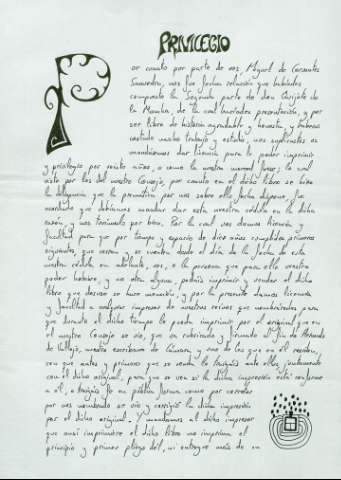 PRIVILEGIO
or cuanto por parte de vos Miguel de Cervantes
Saavedra, nos fue fecha relación que habíades
compuesto la Segunda parte de don Quijote de
la Mancha, de la cual hacíades presentación, y por
ser libro de historia agradable y honesta, y haberos
costado mucho trabajo y estudio, nos suplicastes os
mandásemos dar licencia para le poder imprimir
y privilegio por veinte años, o como la nuestra merced fuese; lo cual
visto por los del nuestro Consejo, por cuanto en el dicho libro se hizo
la diligencia que la premática por nos sobre ello fecha dispone, fue
acordado que debíamos mandar dar esta nuestra cédula en la dicha
razón, y nos tuvímoslo por bien. Por la cual vos damos licencia y
facultad para que por tiempo y espacio de diez años cumplidos primeros
siguientes que corran y se cuenten desde el día de la fecha de esta
nuestra cédula en adelante, vos, o la persona que para ello vuestro
poder hubiere, y no otra alguna, podáis imprimir y vender el dicho
libro que desuso se hace mención, y por la presente damos licencia
y facultad a cualquier impresor de nuestros reinos que nombráredes para
que durante el dicho tiempo le pueda imprimir por el original que en
el nuestro Consejo se vio, que va rubricado y firmado al fin de Hernando
de Vallejo, nuestro escribano de Cámara, y uno de los que en él residen,
con que antes y primero que se venda lo traigáis ante ellos, juntamente
con el dicho original, para que se vea si la dicha impresión está conforme
a él, o traigáis fe en pública forma como por corretor
por nos nombrado se vio y corrigió la dicha impresión
por el dicho original. Y mandamos al dicho impresor
que ansí imprimiere el dicho libro no imprima el
principio y primer pliego dél, ni entregue más de un